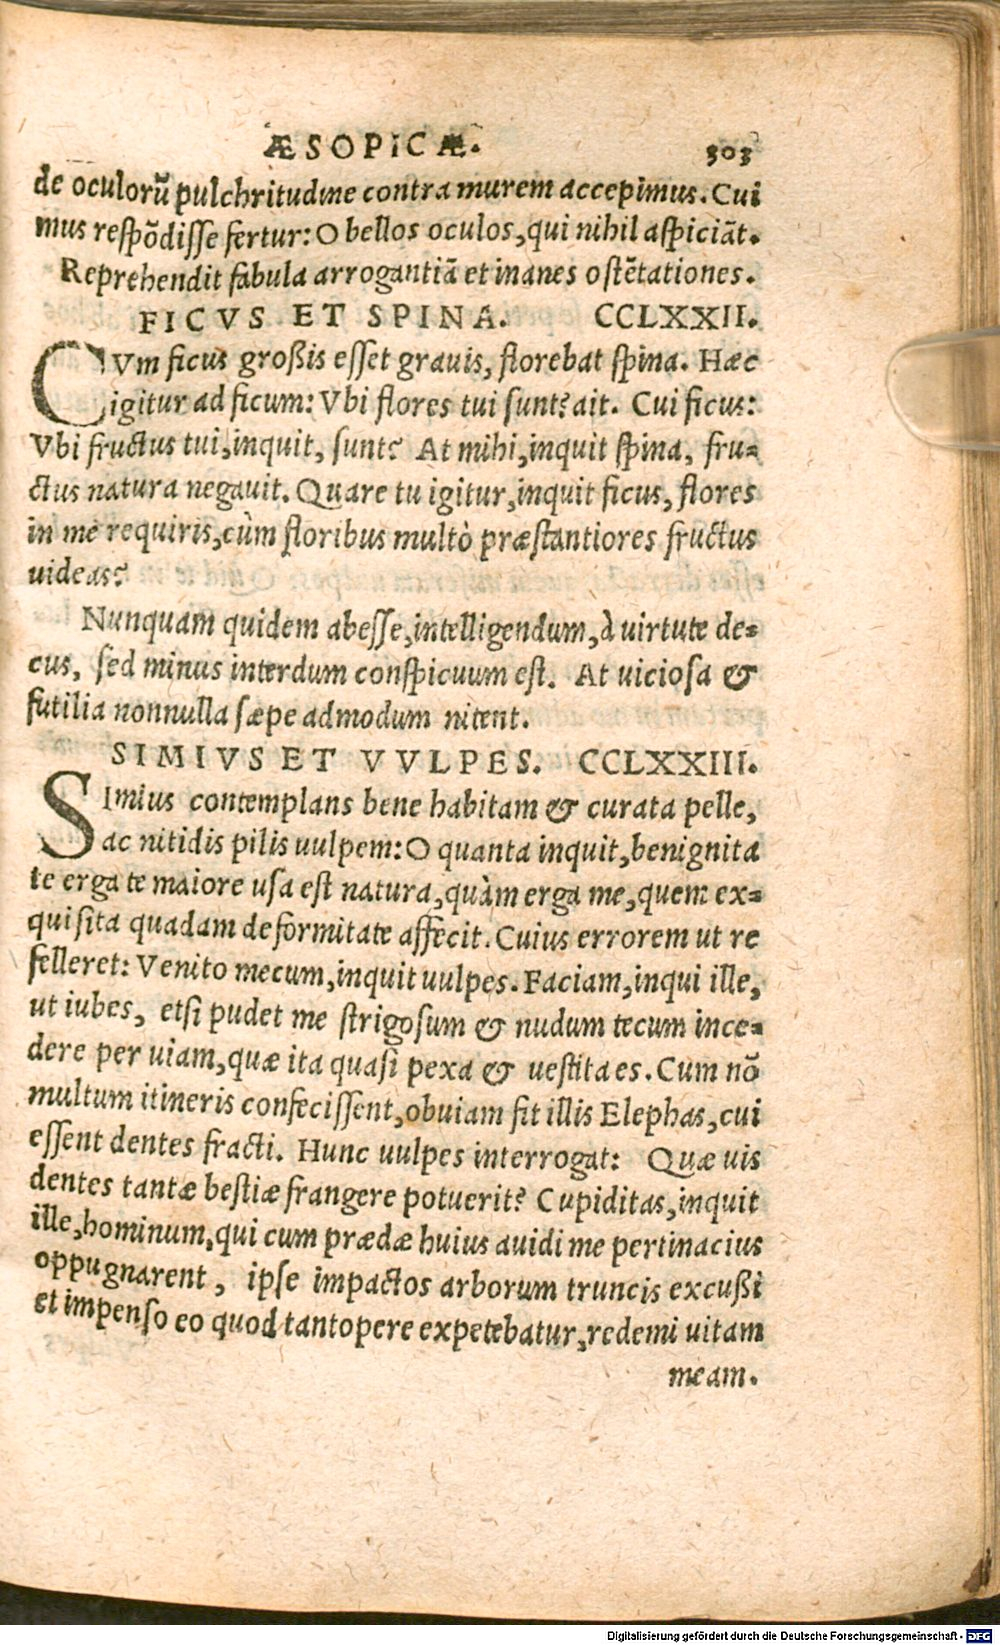 ÆSOPICÆ. 303
de oculorũ pulchritudine contra murem accepimus. Cui
mus respõdisse fertur: O bellos oculos, qui nihil aspiciãt.
Reprehendit fabula arrogantiã et inanes ostẽtationes.
FICVS ET SPINA. CCLXXII.
CVm ficus großis esset grauis, florebat spina. Hæc
igitur ad ficum: Vbi flores tui sunt? ait. Cui ficus:
Vbi fructus tui, inquit, sunt? At mihi, inquit spina, fru-
ctus natura negauit. Quare tu igitur, inquit ficus, flores
in me requiris, cùm floribus multò præstantiores fructus
uideas?
Nunquam quidem abesse, intelligendum, à uirtute de-
cus, sed minus interdum conspicuum est. At uiciosa &
futilia nonnulla sæpe admodum nitent.
SIMIVS ET VVLPES. CCLXXIII.
SImius contemplans bene habitam & curata pelle,
ac nitidis pilis uulpem: O quanta inquit, benignita
te erga te maiore usa est natura, quàm erga me, quem ex-
quisita quadam deformitate affecit. Cuius errorem ut re
felleret: Venito mecum, inquit uulpes. Faciam, inqui ille,
ut iubes, etsi pudet me strigosum & nudum tecum ince-
dere per uiam, quæ ita quasi pexa & uestita es. Cum nõ
multum itineris confecissent, obuiam fit illis Elephas, cui
essent dentes fracti. Hunc uulpes interrogat: Quæ uis
dentes tantæ bestiæ frangere potuerit? Cupiditas, inquit
ille, hominum, qui cum prædæ huius auidi me pertinacius
oppugnarent, ipse impactos arborum truncis excußi
et impenso eo quod tantopere expetebatur, redemi uitam
meam.
Digitalisierung gefördert durch die Deutsche Forschungsgemeinschaft - DFG